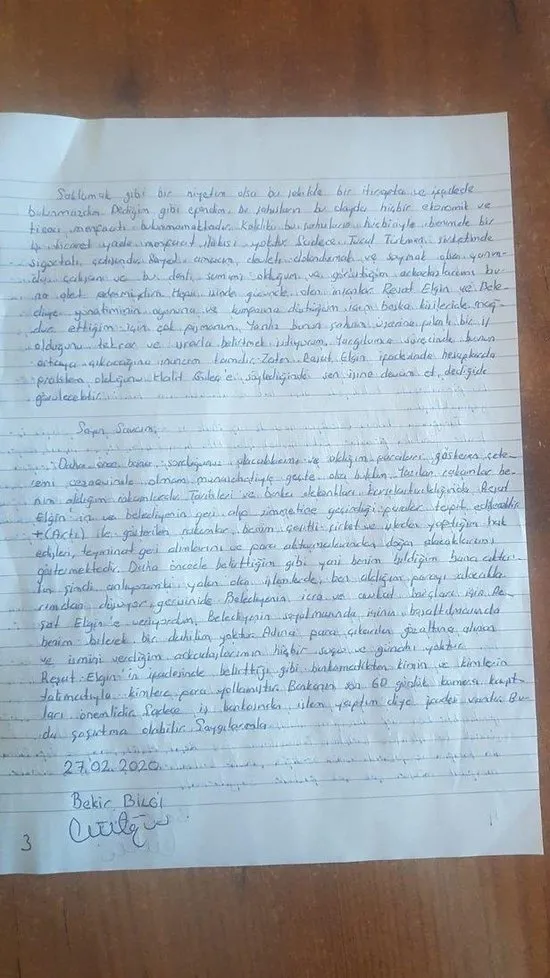 Saklamak gibi bir niyetim olsa bu şekilde bir itirafta ve ifadede
bulunmazdım. Dediğim gibi efendim, bu şahısların bu olayda hiçbir ekonomik ve
ticari menfaati bulunmamaktadır. Kaldıki bu şahısların hiçbiriyle benimde bir
iş, ticaret yada menfaat ilişkisi yoktur. Sadece Tucul Türkmen şirketimde
sigortalı çalışandı. Hayatı amacım, devleti dolandırmak ve soymak olsa yanım-
da çalışanı ve bu denli samimi olduğum ve görüştüğüm arkadaşlarımı bu-
na alet edermiydim. Hepsi işinde gücünde olan insanlar Reşat Elgin ve Bele-
diye yönetiminin oyununa ve kumpasına düştüğüm için başka kişileride mağ-
dur ettiğim için çok pişmanım. Yanlız bunun şahsım üzerine yıkılan bir iş
olduğunu tekrar ve ısrarla belirtmek istiyorum. Yargılama sürecinde bunun
ortaya çıkacağına inancım tamdır. Zaten Reşat Elgin ifadesinde hesaplarda
problem olduğunu Halit Güleç'e söylediğinde sen işine devam et dediğide
görülecektir.
Sayın Savcım,
Daha önce bana sorduğunuz alacaklarımı ve aldığım paraları gösteren çete-
lemi cezaevinde olmam münasebetiyle geçte olsa buldum. Yazılan rakamlar be-
nim aldığım rakamlardır. Tarihleri ve banka dekontları karşılaştırıldığında Reşat
Elgin'in ve belediyenin geri alıp zimmetine geçirdiği paralar tespit edilecektir.
+(Artı) ile gösterilen rakamlar benim çeşitli şirket ve işlerden yaptığım hak
edişleri, teyminat geri alımlarını ve para aktarmalarından doğan alacaklarımı
göstermektedir. Daha öncede belirttiğim gibi yani benim bildiğim bana aktarı-
lan şimdi anlıyorumki yalan olan işlemlerde, ben aldığım parayı alacakla-
rımdan düşüyor, gerisinide Belediyenin icra ve avukat borçları için Re-
şat Elgin'e veriyordum. Belediyenin soyulmasında işinin boşaltılmasında
benim bilerek bir dahilim yoktur. Adına para çıkarılan gözaltına alınan
ve ismini verdiğim arkadaşlarımın hiçbir suçu ve günahı yoktur.
Reşat Elgin'in ifadesinde belirttiği gibi bankamatikten kimin ve kimlerin
talimatıyla kimlere para yollamıştır. Bankanın son 60 günlük kamera kayıt-
ları önemlidir. Sadece iş bankasından işlem yaptım diye ifadesi vardır. Bu-
da şaşırtma olabilir. Saygılarımla.
27.02.2020
Bekir BİLGİ
3